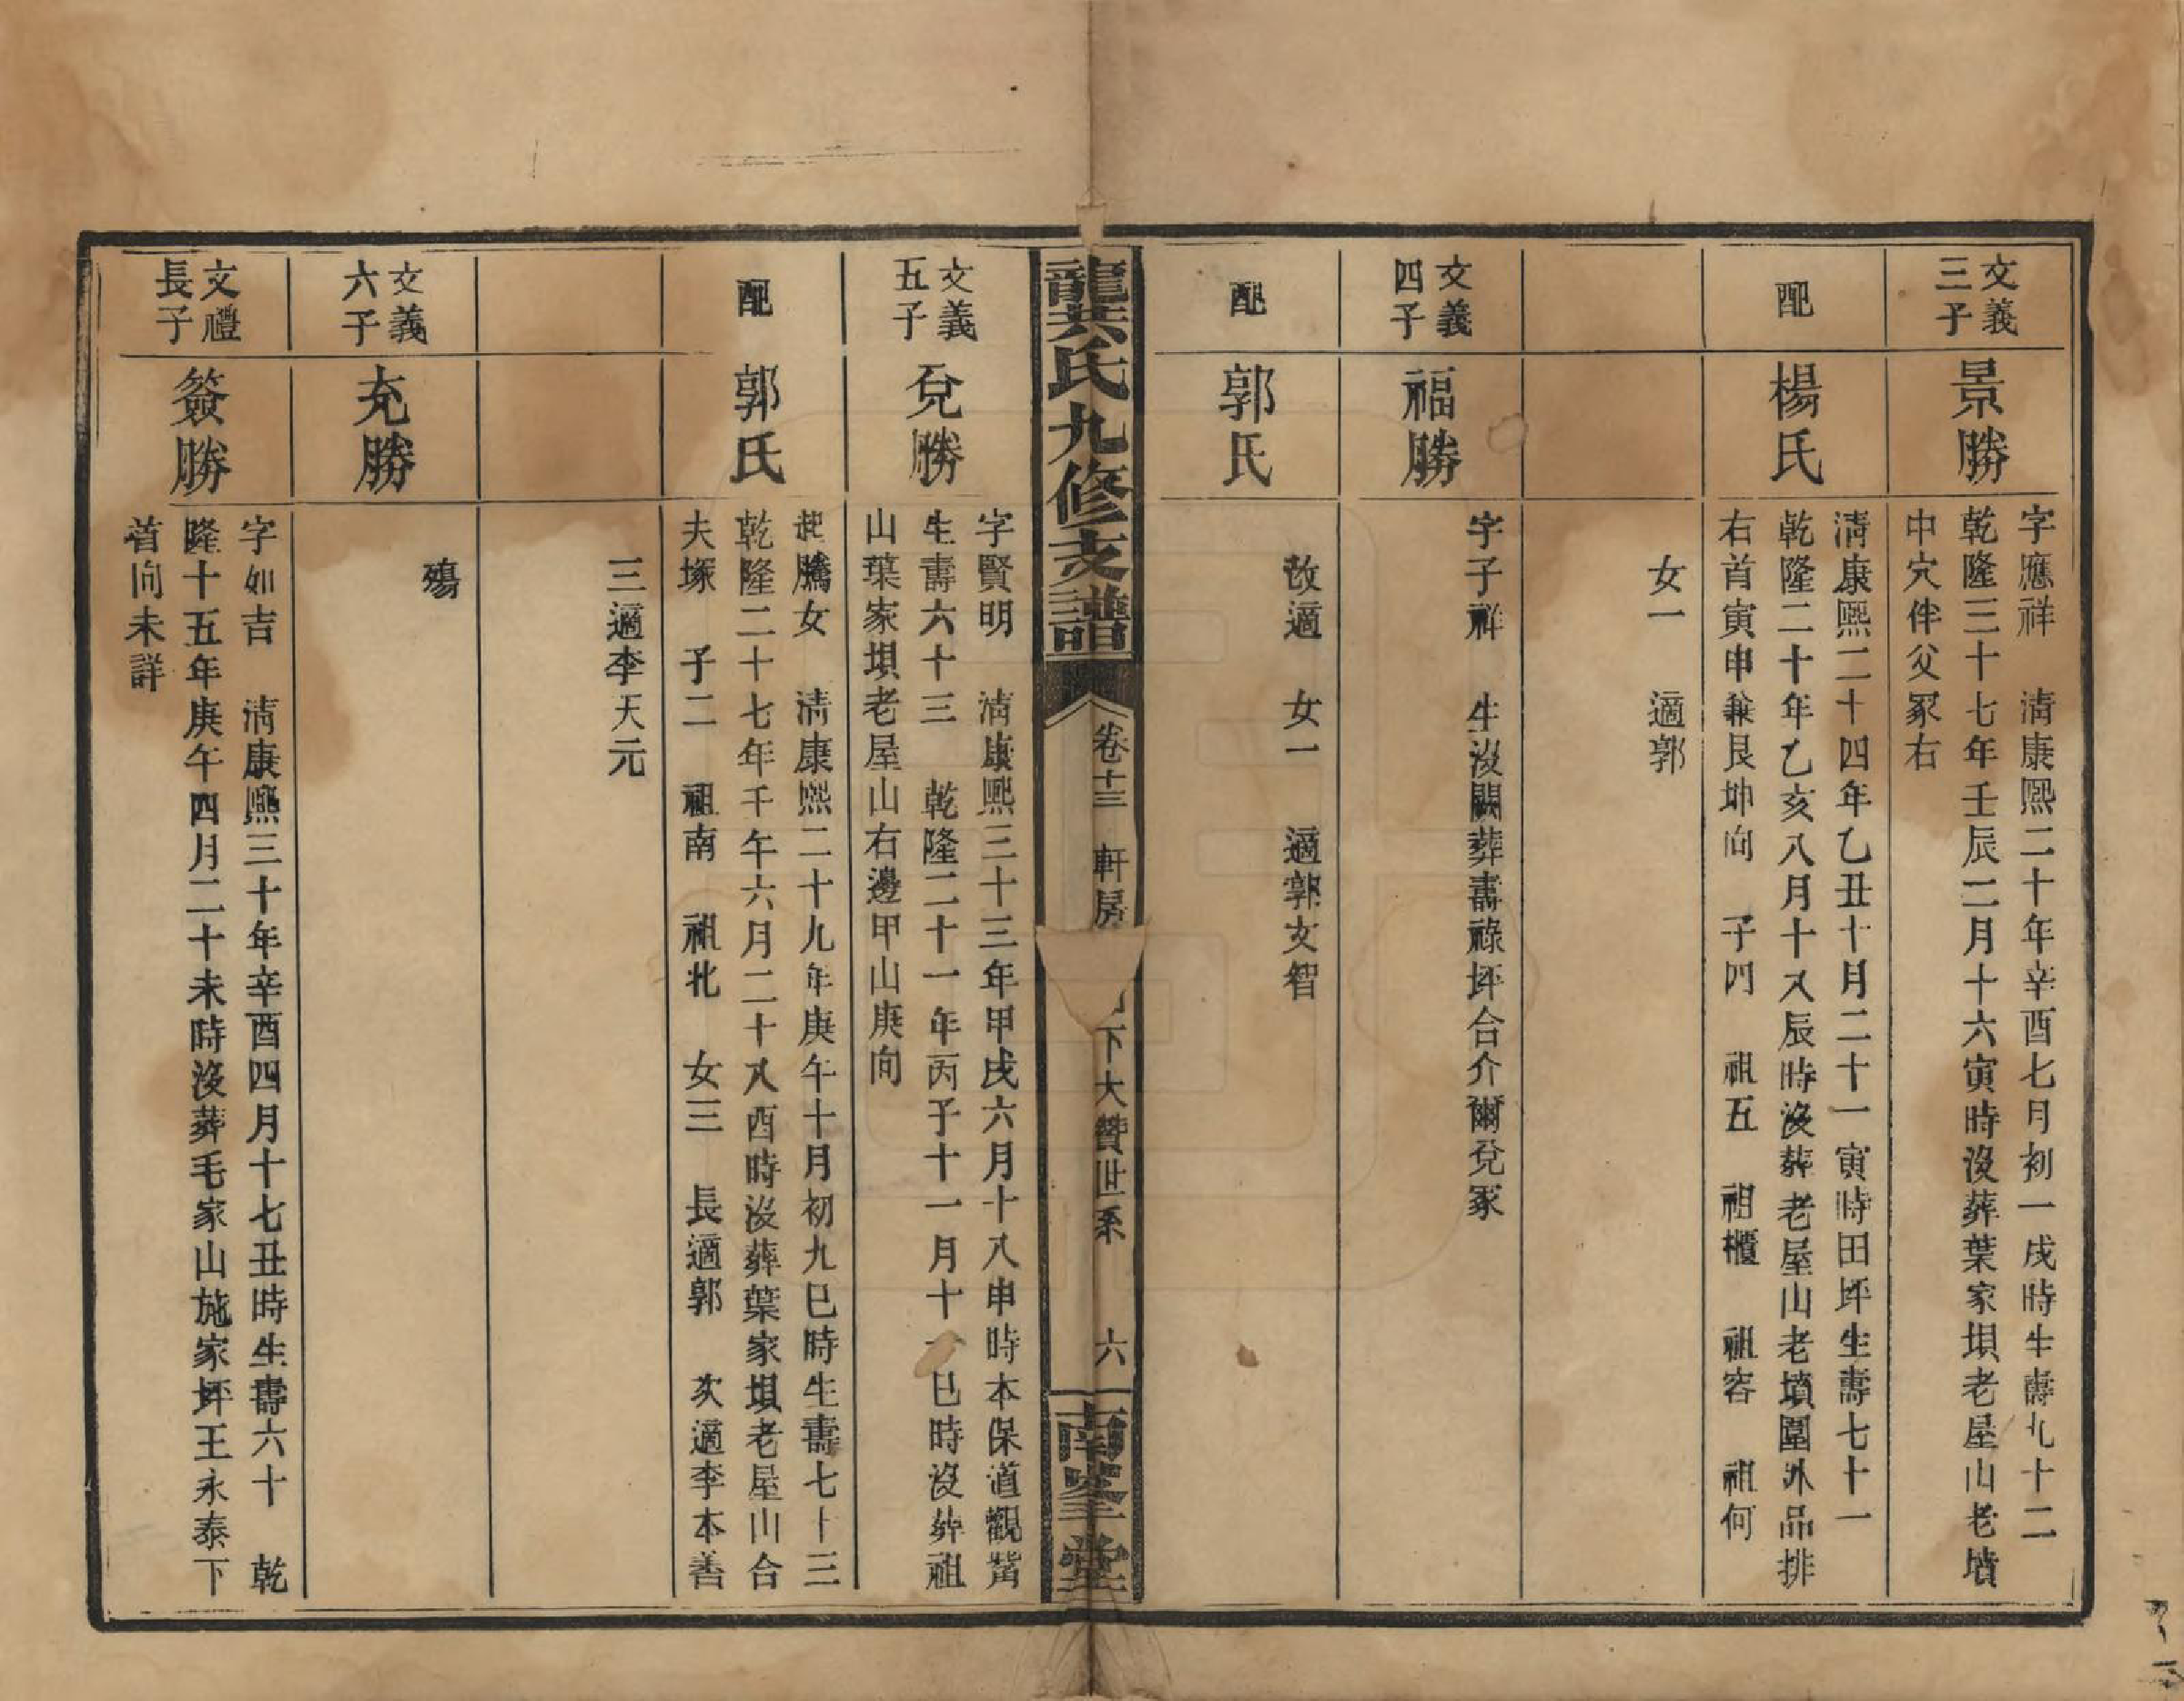 文義
三子
景勝
字應祥　清康熙二十年辛酉七月初一戌時生壽九十二
乾隆三十七年壬辰二月十六寅時沒葬葉家垻老屋山老墳
中穴伴父冢右
配
楊氏
清康熙二十四年乙丑十月二十一寅時田坪生壽七十一
乾隆二十年乙亥八月十八辰時沒葬老屋山老墳圍外品排
右首寅申兼艮坤向　子四　祖五　祖櫃　祖容　祖何
女一　適郭
文義
四子
福勝
字子祥　生沒闕葬壽祿坪合介爾兌冢
配
郭氏
改適　女一　適郭文智
龍洪氏九修支譜
卷十三　軒房
下大贊世系　六
南峯堂
文義
五子
兌勝
字賢明　清康熙三十三年甲戌六月十八申時本保道觀背
生壽六十三　乾隆二十一年丙子十一月十一巳時沒葬祖
山葉家垻老屋山右邊甲山庚向
配
郭氏
起騰女　清康熙二十九年庚午十月初九巳時生壽七十三
乾隆二十七年壬午六月二十八酉時沒葬葉家垻老屋山合
夫塚　子二　祖南　祖北　女三　長適郭　次適李本善
三適李天元
文義
六子
充勝
殤
文禮
長子
簽勝
字如吉　清康熙三十年辛酉四月十七丑時生壽六十　乾
隆十五年庚午四月二十未時沒葬毛家山施家坪王永泰下
首向未詳